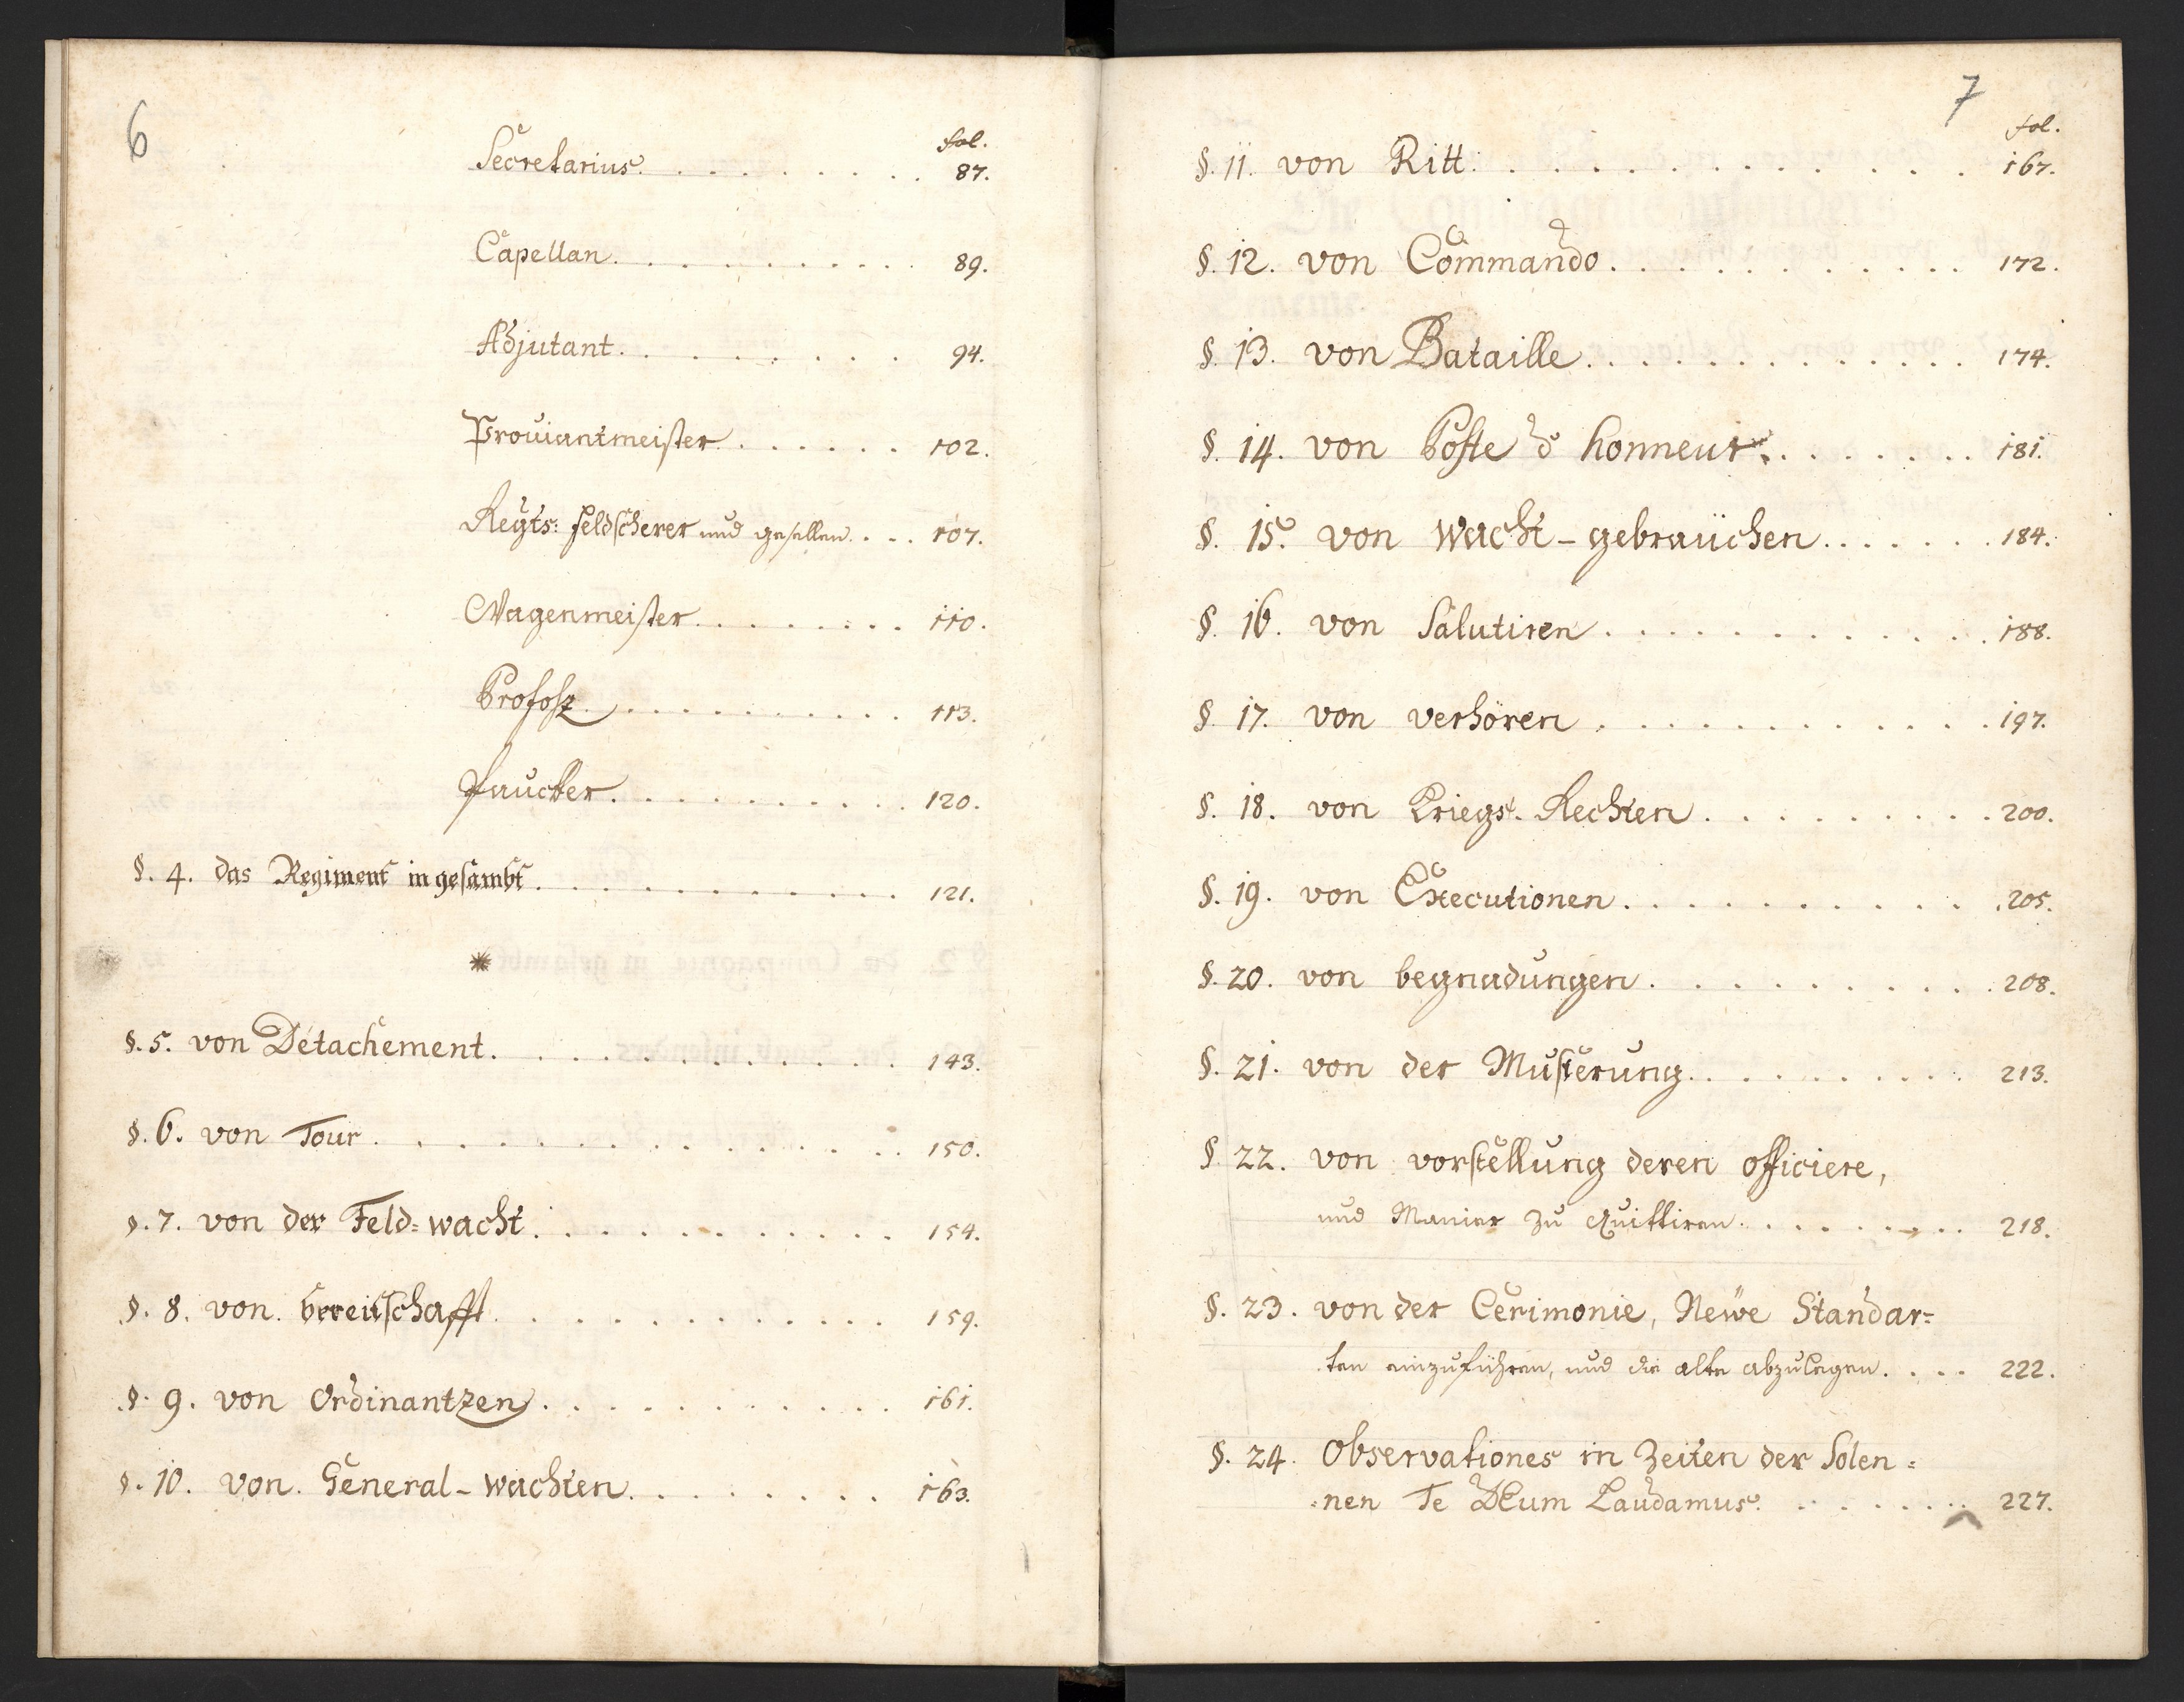 6
fol.
Secretarius. . . . . . . . . . 87.
Capellan. . . . . . . . . . . 89.
Adjutant. . . . . . . . . 94.
Proviantmeister. . . . . . . 102.
Regts: feldscherer und gesellen. . . . 107.
Wagenmeister. . . . . . . . 110.
Profosz. . . . . . . . . . . 113.
Paucker. . . . . . . . . . 120.
§. 4. das Regiment in gesambt. . . . . . . . . . . . 121.
*
§. 5. von Détachement. . . . . . . . . . . . . 143.
§. 6. von Tour. . . . . . . . . . . . . . 150.
§. 7. von der Feld=wacht. . . . . . . . . . . . 154.
§. 8. von bereitschafft. . . . . . . . . . . 159.
§. 9. von Ordinantzen. . . . . . . . . . . 161.
§. 10. von General-wachten. . . . . . . . 163.
7
fol.
§. 11. von Ritt. . . . . . . . . . . . . . 167.
§. 12. von Commando. . . . . . . . . . . 172.
§. 13. von Bataille. . . . . . . . . . . . . 174.
§. 14. von Poste d' honneur. . . . . . . . 181.
§. 15. von wacht-gebraüchen. . . . . . . 184.
§. 16. von Salutiren. . . . . . . . . . . . 188.
§. 17. von verhören. . . . . . . . . . . . 197.
§. 18. von Kriegs-Rechten. . . . . . . . . 200.
§. 19. von Executionen. . . . . . . . . . . 205.
§. 20. von begnadungen. . . . . . . . . . 208.
§. 21. von der Musterung. . . . . . . . . . 213.
§. 22. von vorstellung deren officiere,
und Manier zu quittiren. . . . . . . . . 218.
§. 23. von der Cerimonie, Newe Standar=
ten einzuführen, und die alte abzulegen. . . . 222.
§. 24. Observationes in Zeiten der Solen=
=nen Te DEum Laudamus. . . . . . . . 227.